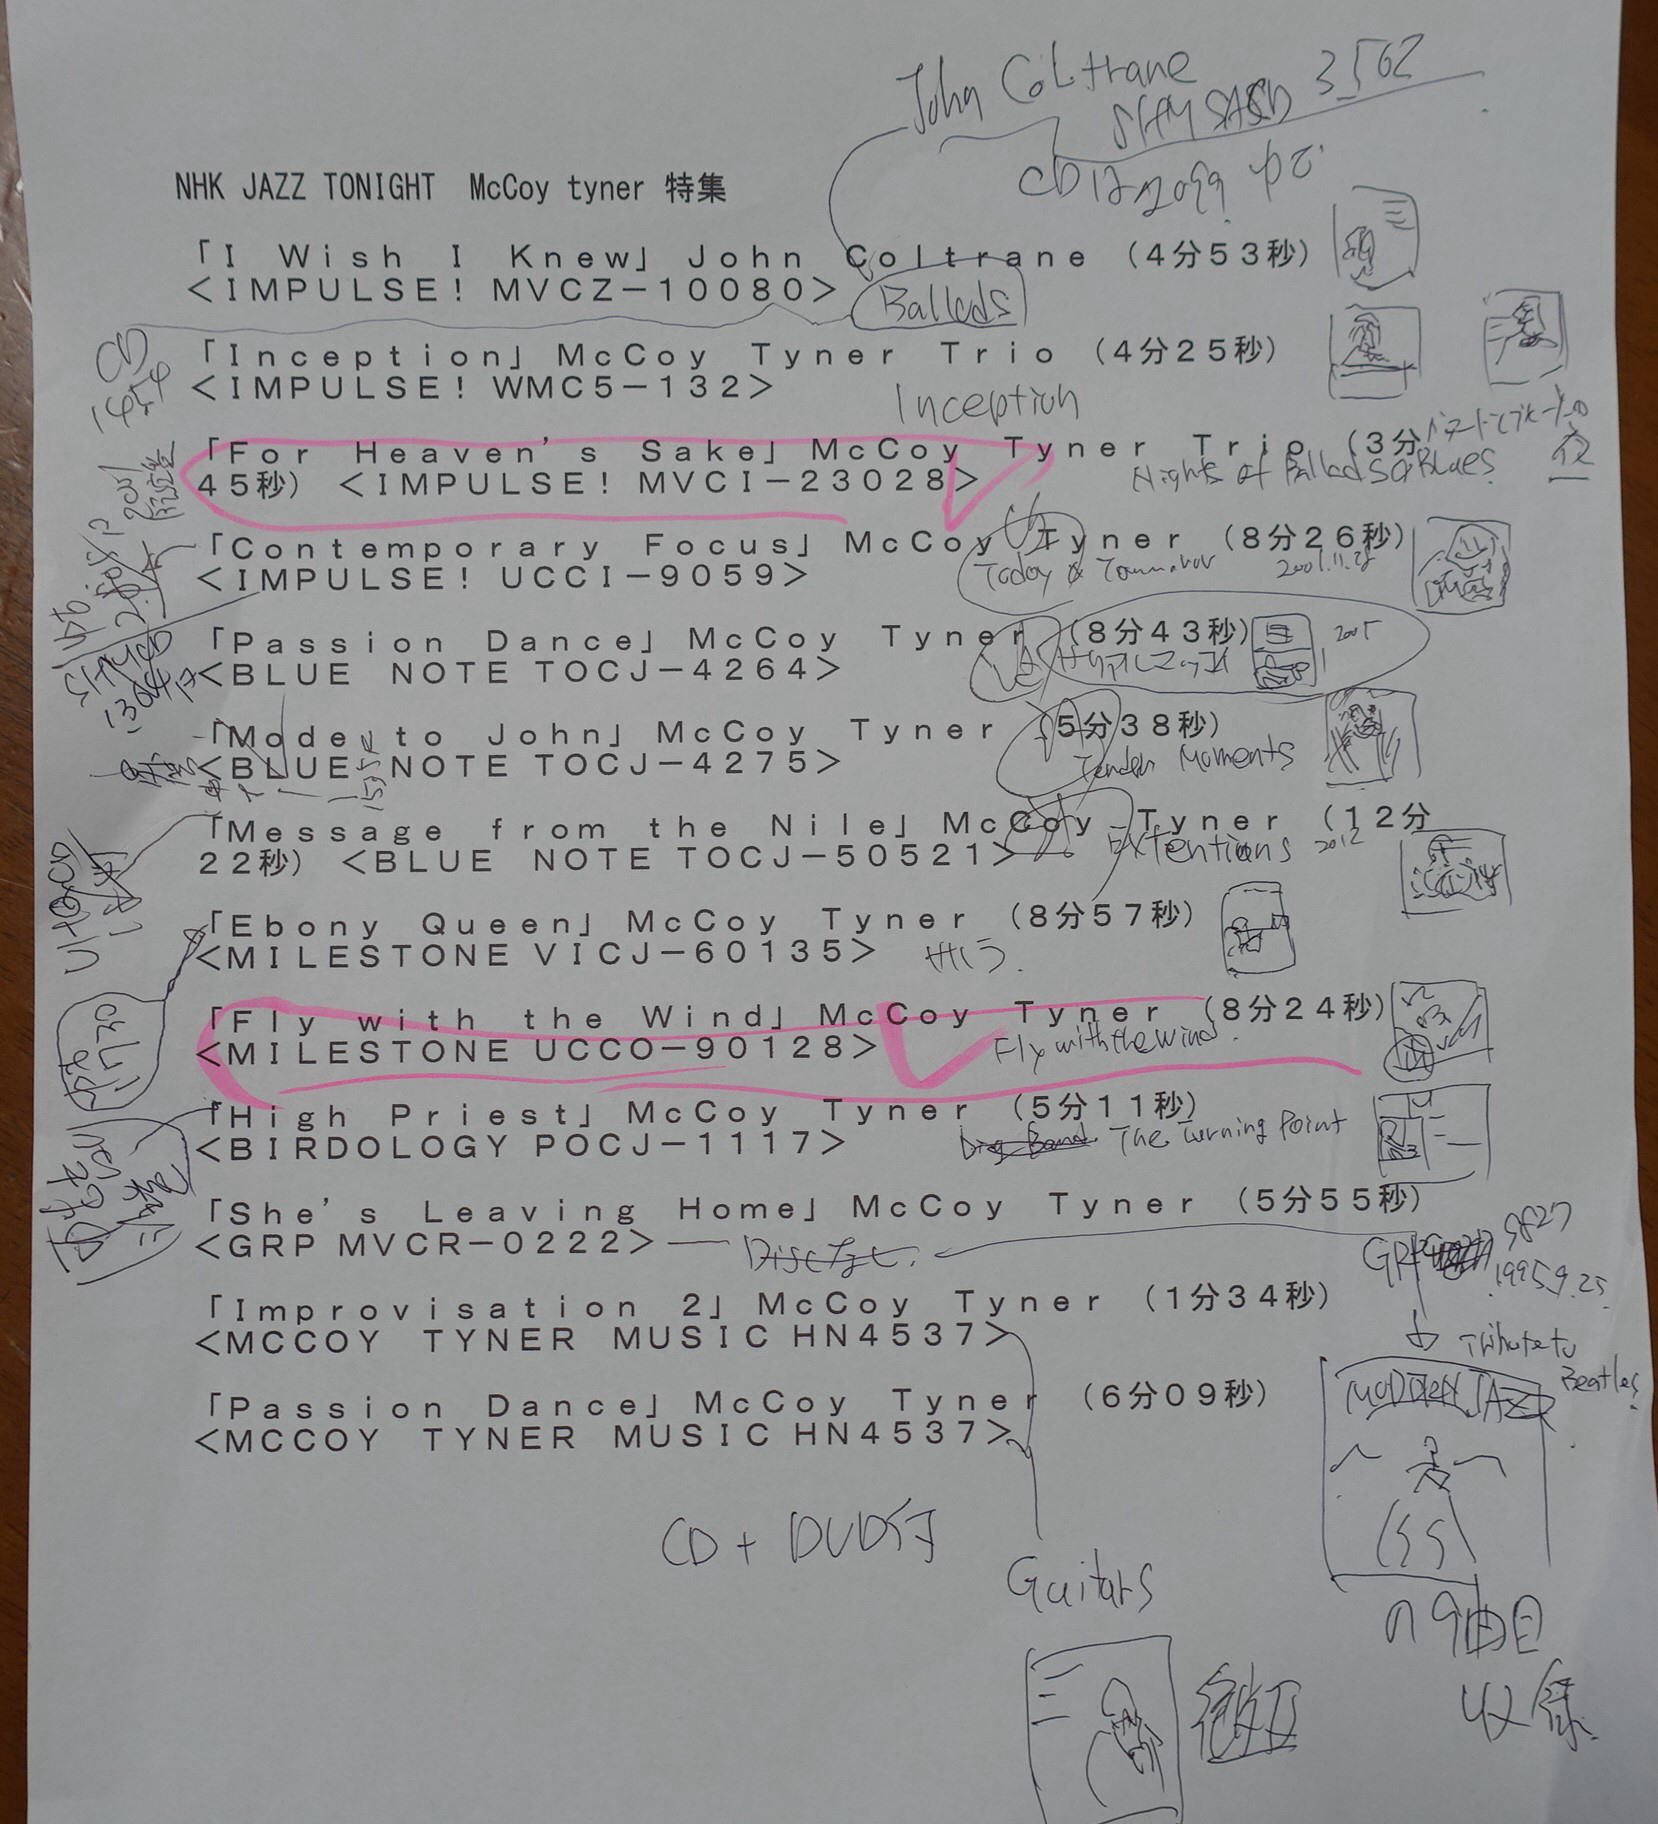 John Coltrane
SHM SACD 3562
CDは2099 中古
NHK JAZZ TONIGHT McCoy tyner 特集
「I Wish I Knew」 John Coltrane (4分53秒)
<IMPULSE! MVCZ-10080>
Ballads
「Inception」 McCoy Tyner Trio (4分25秒)
<IMPULSE! WMC5-132>
Inception
「For Heaven's Sake」 McCoy Tyner Trio (3分
45秒) <IMPULSE! MVCI-23028>
Nights of Ballads & Blues
「Contemporary Focus」 McCoy Tyner (8分26秒)
<IMPULSE! UCCI-9059>
Today & Tomorrow
2001.11.28
「Passion Dance」 McCoy Tyner (8分43秒)
<BLUE NOTE TOCJ-4264>
2005
「Mode to John」 McCoy Tyner (5分38秒)
<BLUE NOTE TOCJ-4275>
Tender Moments
「Message from the Nile」 McCoy Tyner (12分
22秒) <BLUE NOTE TOCJ-50521>
Extentions 2012
「Ebony Queen」 McCoy Tyner (8分57秒)
<MILESTONE VICJ-60135>
サハラ
「Fly with the Wind」 McCoy Tyner (8分24秒)
<MILESTONE UCCO-90128>
Fly with the Wind
「High Priest」 McCoy Tyner (5分11秒)
<BIRDOLOGY POCJ-1117>
Big Band The Turning Point
「She's Leaving Home」 McCoy Tyner (5分55秒)
<GRP MVCR-0222>
GRP 9827
1995.9.25
「Improvisation 2」 McCoy Tyner (1分34秒)
<MCCOY TYNER MUSIC HN4537>
Tribute to
Beatles
MODERN JAZZ
「Passion Dance」 McCoy Tyner (6分09秒)
<MCCOY TYNER MUSIC HN4537>
CD + DVD付
Guitars
の9曲目
収録